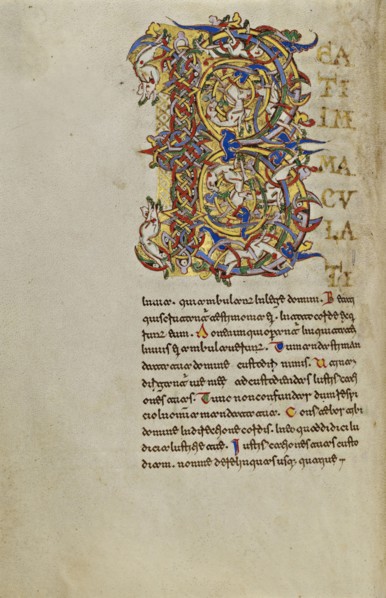 B EA
TI
IM
MA
CV
LA
TI
Inuia. qui ambulant In lege domini. Beati
qui scrutant testimonia ei. In toto corde exq
runt eum. Non enim qui operant Iniquitate
In uiis ei ambulauerunt. Tu mandasti man
data tua domine custodiri nimis. Utina
dirigant uie mee ad custodiendas Iustificati
ones tuas. Tunc non confundar dum respi
cio In omnia mandata tua. Confitebor tibi
domine In directione cordis. In eo quod didici Iu
dicia Iustitie tue. Iustificationes tuas custo
diam. non me derelinquas usq; quaque